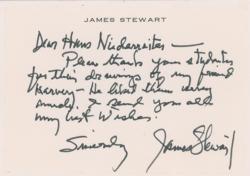 JAMES STEWART
Dear Hans Niederreiter —
Please thank your students
for the drawings of my friend
Harvey — He liked them very
much. I send you all
my best wishes.
Sincerely James Stewart